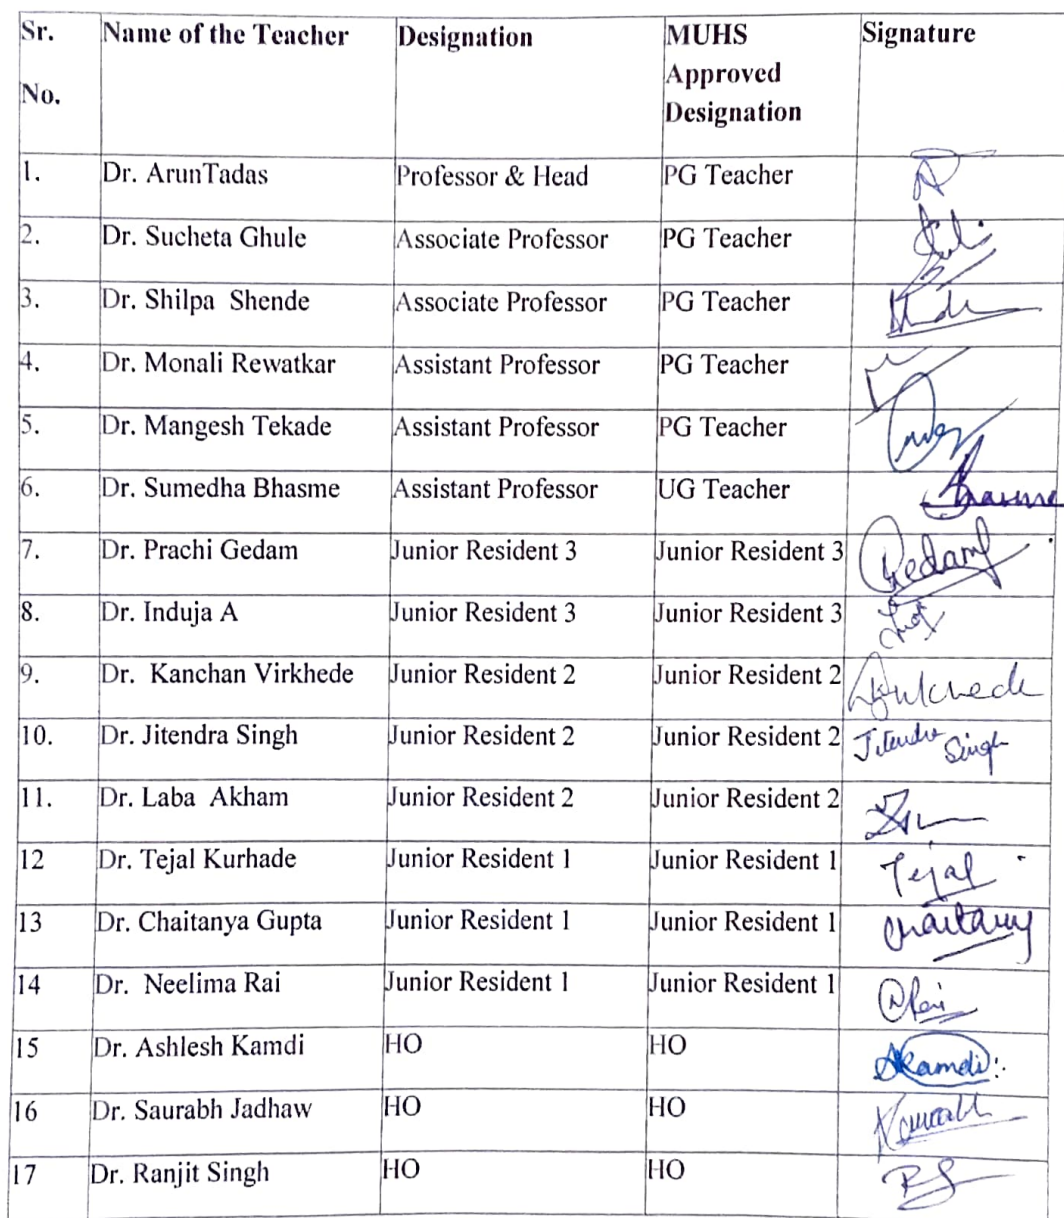 Sr. No. Name of the Teacher Designation MUHS Approved Designation Signature
1. Dr. ArunTadas Professor & Head PG Teacher
2. Dr. Sucheta Ghule Associate Professor PG Teacher
3. Dr. Shilpa Shende Associate Professor PG Teacher
4. Dr. Monali Rewatkar Assistant Professor PG Teacher
5. Dr. Mangesh Tekade Assistant Professor PG Teacher
6. Dr. Sumedha Bhasme Assistant Professor UG Teacher
7. Dr. Prachi Gedam Junior Resident 3 Junior Resident 3 Gedam
8. Dr. Induja A Junior Resident 3 Junior Resident 3
9. Dr. Kanchan Virkhede Junior Resident 2 Junior Resident 2
10. Dr. Jitendra Singh Junior Resident 2 Junior Resident 2 Jitendra Singh
11. Dr. Laba Akham Junior Resident 2 Junior Resident 2
12 Dr. Tejal Kurhade Junior Resident 1 Junior Resident 1 Tejal
13 Dr. Chaitanya Gupta Junior Resident 1 Junior Resident 1
14 Dr. Neelima Rai Junior Resident 1 Junior Resident 1
15 Dr. Ashlesh Kamdi HO HO AKamdi
16 Dr. Saurabh Jadhaw HO HO
17 Dr. Ranjit Singh HO HO RS